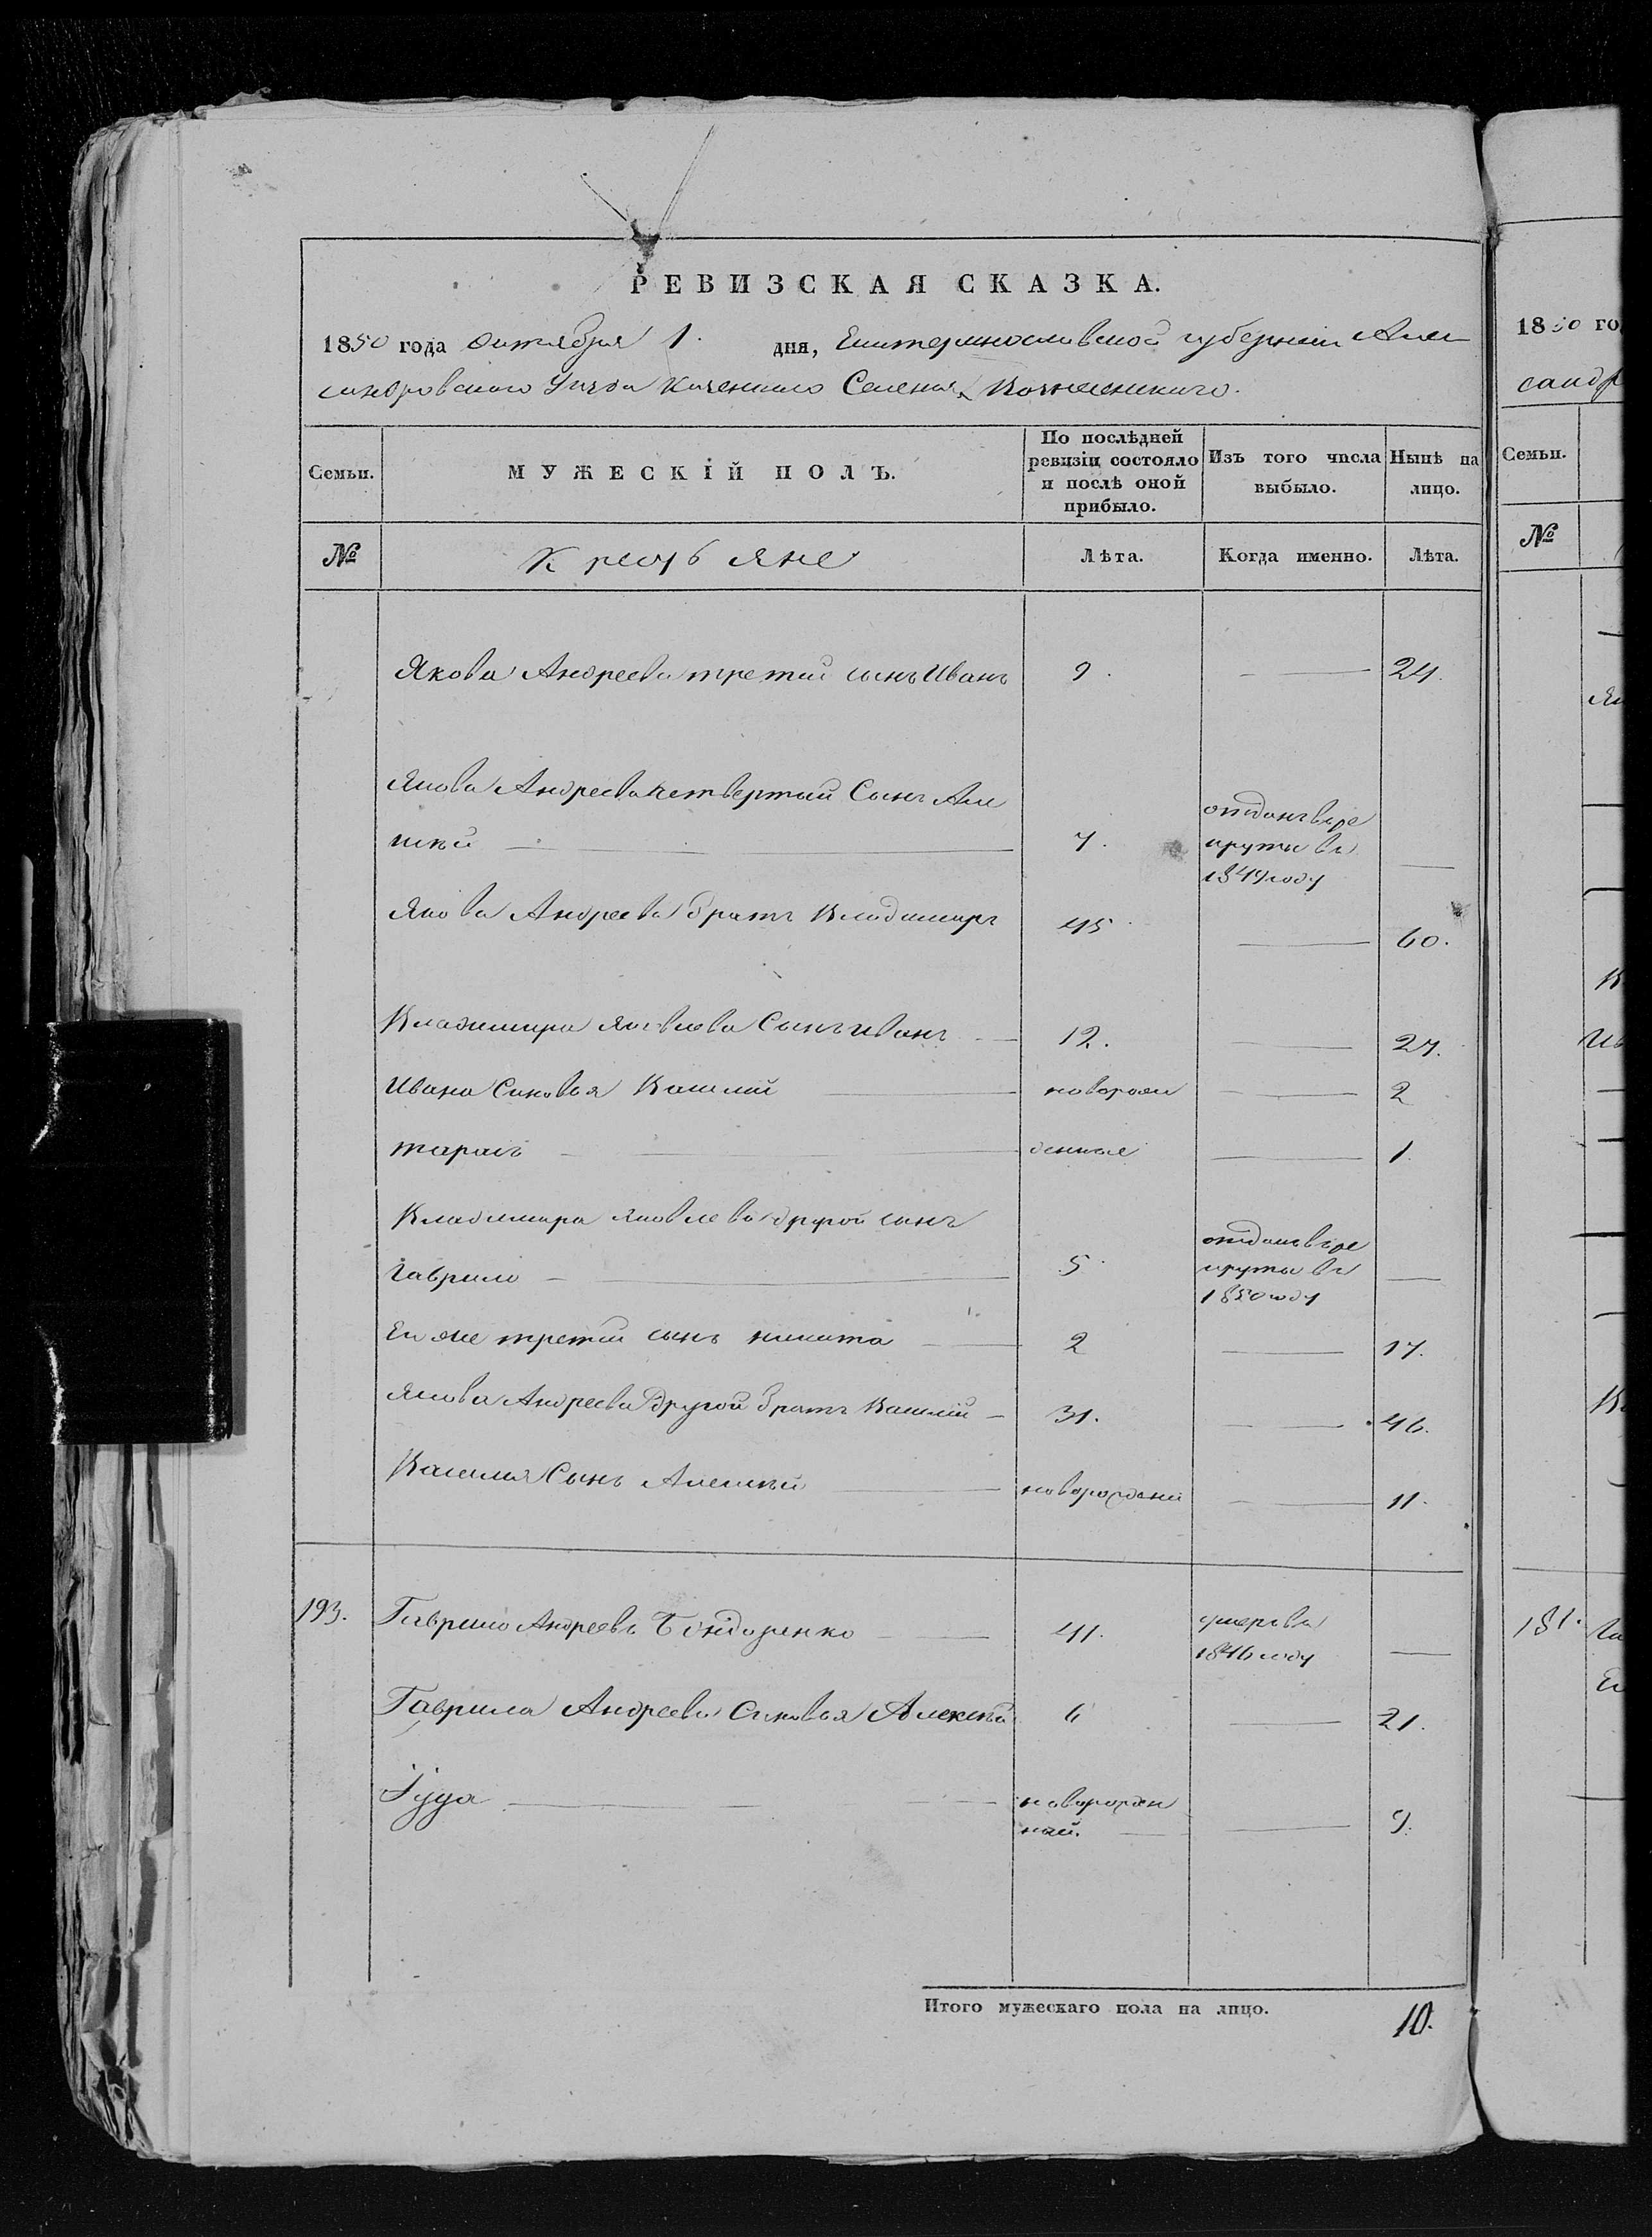 РЕВИЗСКАЯ СКАЗКА.
1850 года Октября 1. дня, Екатеринославской губернии Алек
сандровского Уезда Казенного Селения Вознесенского.
Семьи. МУЖЕСКІЙ ПОЛЪ. По послѣдней ревизіи состояло и послѣ оной прибыло. Изъ того числа выбыло. Нынѣ на лицо.
№ Крестьяне Лѣта. Когда именно. Лѣта.
Якова Андреева третий сынъ Иванъ 9. 24.
Якова Андреева четвертый Сынъ Але
ксѣй 7. отданъ въ ре
круты въ
1849 году
Якова Андреева братъ Владимиръ 45 60.
Владимира Яковлева Сынъ иванъ 12. 27.
Ивана Синовья Василий новорож 2
тарасъ денные 1.
Владимира Яковлева другой сынъ
Гаврило 5. отданъ въ ре
круты въ
1850 году
Ею же третий сынъ никита 2 17.
Якова Андреева другой братъ Василий 31. 46.
Василия Сынъ Алексѣй новорождени 11.
193. Гаврило Андреевъ Бондаренко 41. умеръ въ
1846 году
Гаврила Андреева Синовья Алексѣй 6 21.
Іуда новорожден
ний. 9.
Итого мужескаго пола на лицо. 10.
1850 го
сандр
Семьи.
№
181.